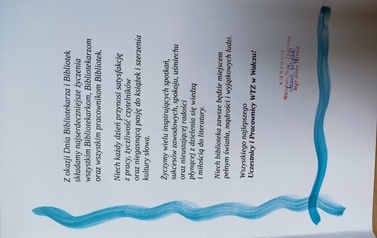 Z okazji Dnia Bibliotekarza i Bibliotek
składamy najserdeczniejsze życzenia
wszystkim Bibliotekarkom, Bibliotekarzom
oraz wszystkim pracownikom Bibliotek.
Niech każdy dzień przynosi satysfakcję
z pracy, życzliwość czytelników
oraz niegasnącą pasję do książek i szerzenia
kultury słowa.
Życzymy wielu inspirujących spotkań,
sukcesów zawodowych, spokoju, uśmiechu
oraz nieustającej radości
płynącej z dzielenia się wiedzą
i miłością do literatury.
Niech biblioteka zawsze będzie miejscem
pełnym światła, mądrości i wyjątkowych ludzi.
Wszystkiego najlepszego
Uczestnicy i Pracownicy WTZ w Wałczu!
KIEROWNIK